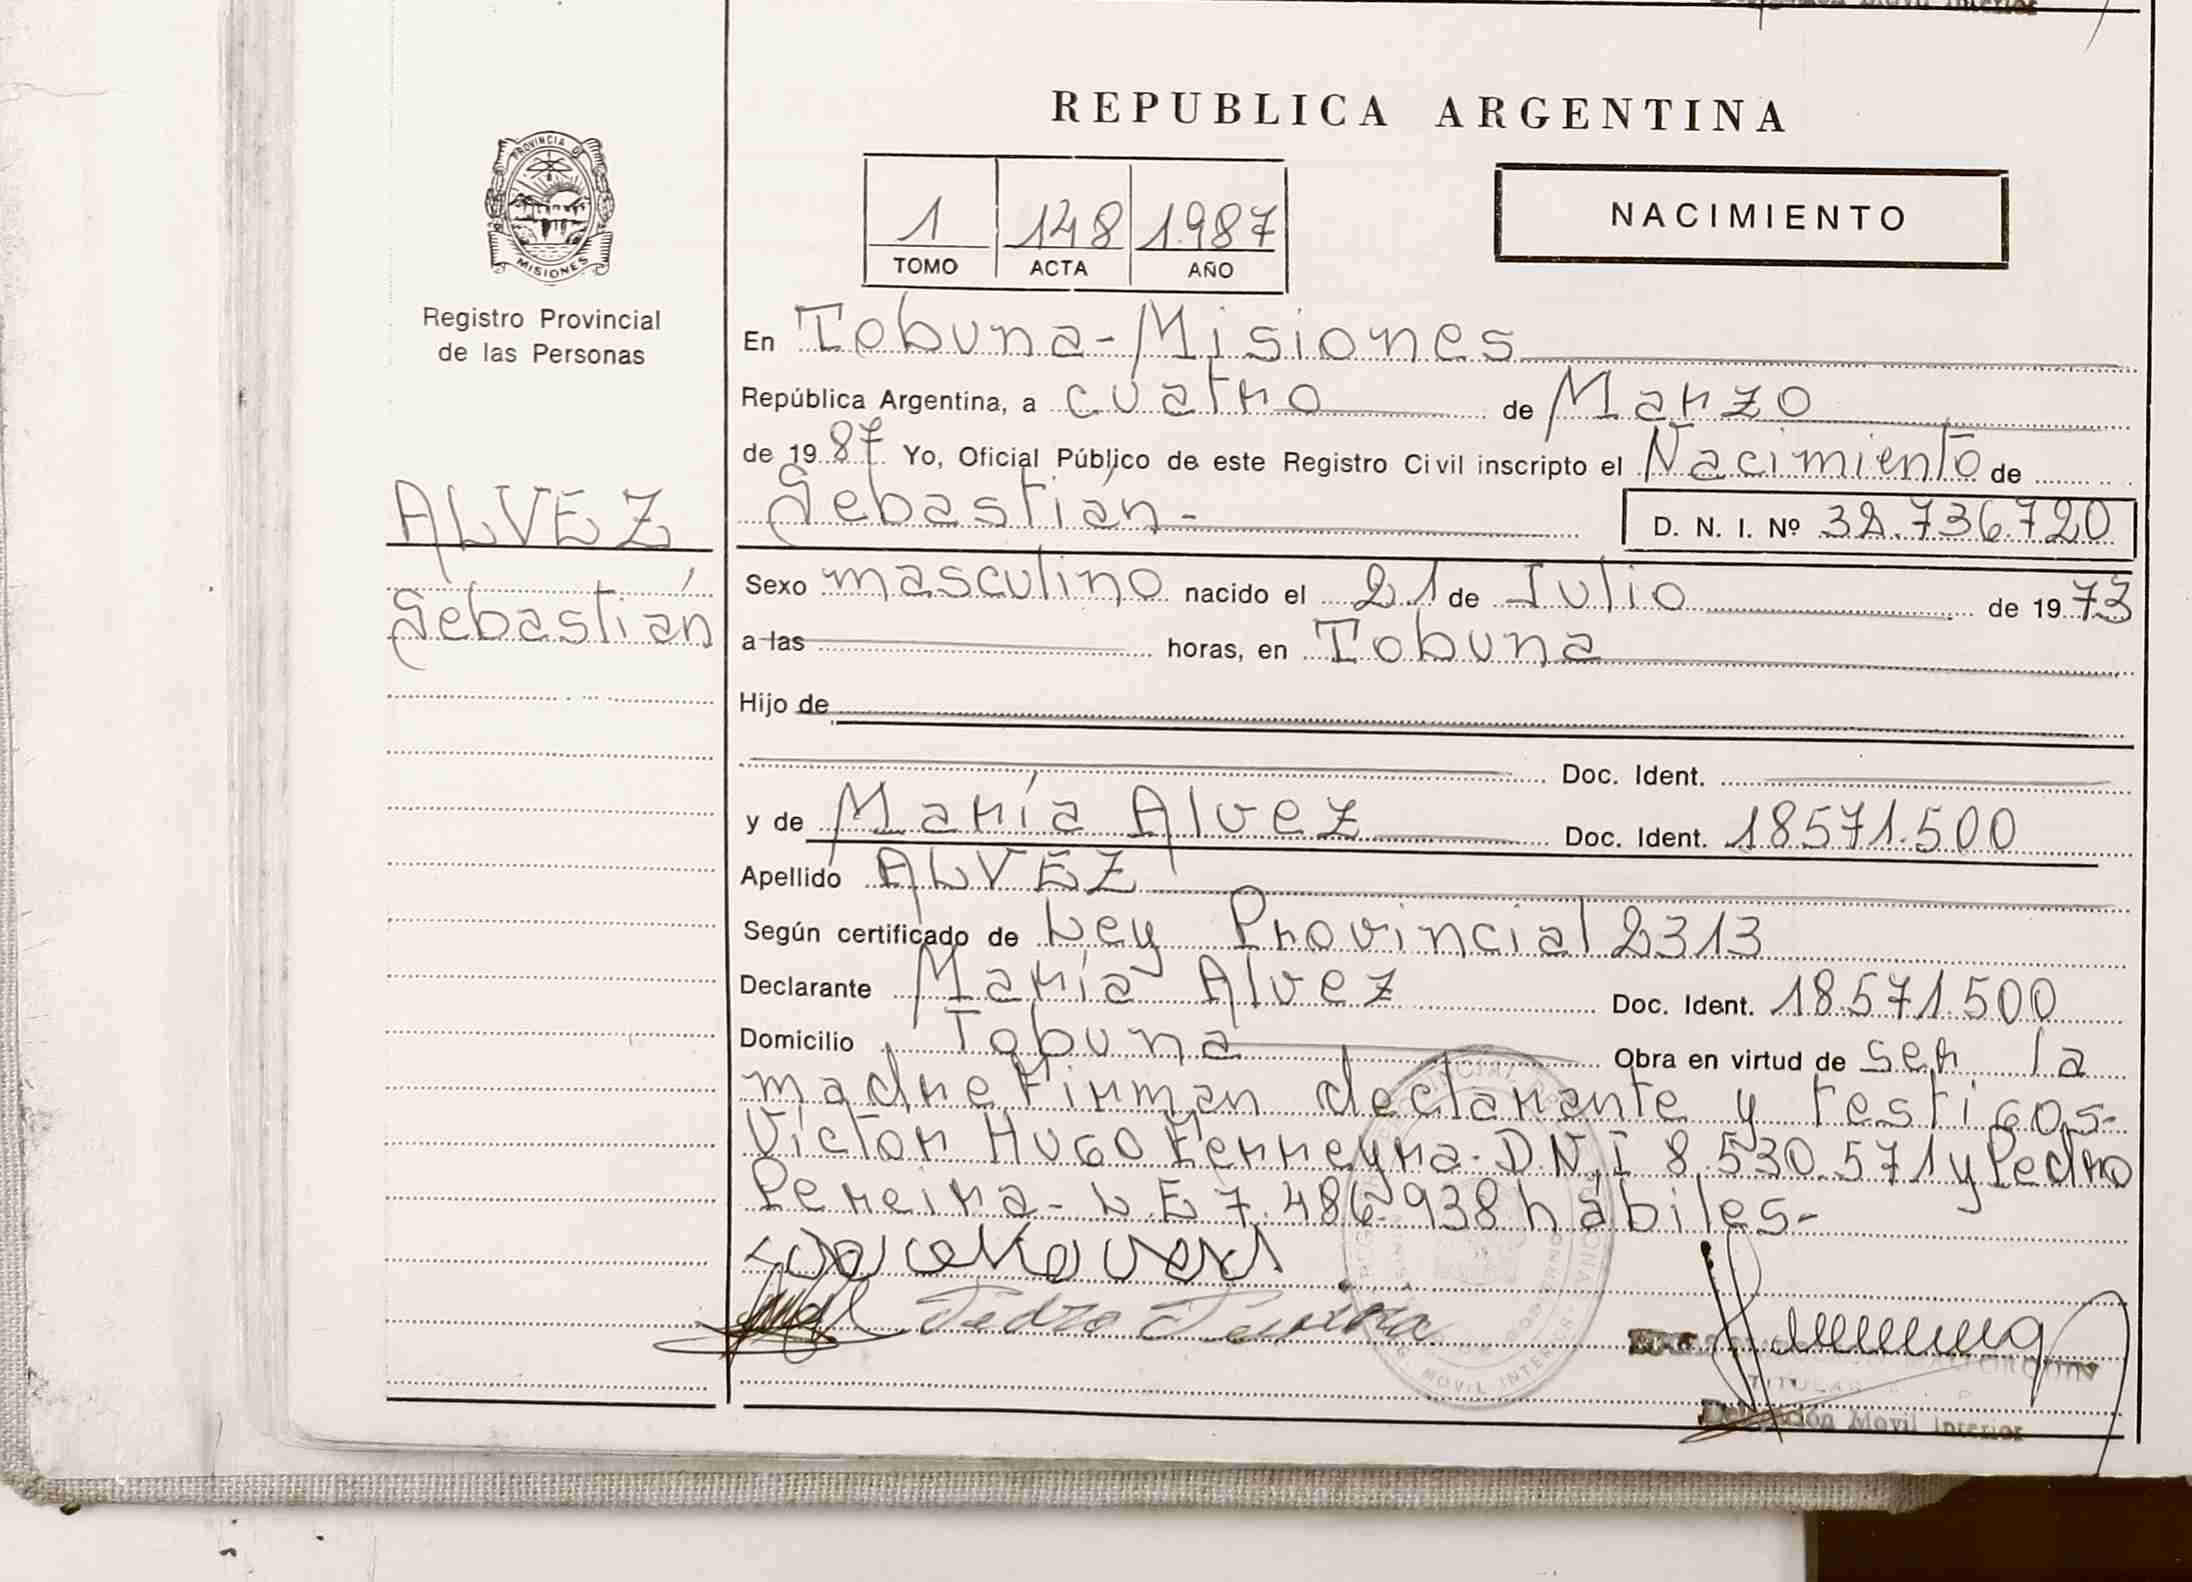 REPUBLICA ARGENTINA
PROVINCIA D
MISIONES
Registro Provincial
de las Personas
1 148 1.987
TOMO ACTA AÑO
NACIMIENTO
En Tobuna-Misiones
República Argentina, a cuatro de Marzo
de 19 87 Yo, Oficial Público de este Registro Civil inscripto el Nacimiento de
ALVEZ
Sebastián
Sebastián-
D. N. I. Nº 32.736.720
Sexo masculino nacido el 21 de Julio de 19 73
a las horas, en Tobuna
Hijo de
Doc. Ident.
y de María Alvez Doc. Ident. 18571.500
Apellido ALVEZ
Según certificado de Ley Provincial 2313
Declarante María Alvez Doc. Ident. 18.571.500
Domicilio Tobuna Obra en virtud de ser la
madre Firman declarante y testigos-
Víctor Hugo Ferreyra-D.N.I 8.530.571 y Pedro
Pereira-L.E 7.486.938 hábiles-
Pedro Pereira
TITULAR
Delegación Movil Interior
MOVIL INTERIOR